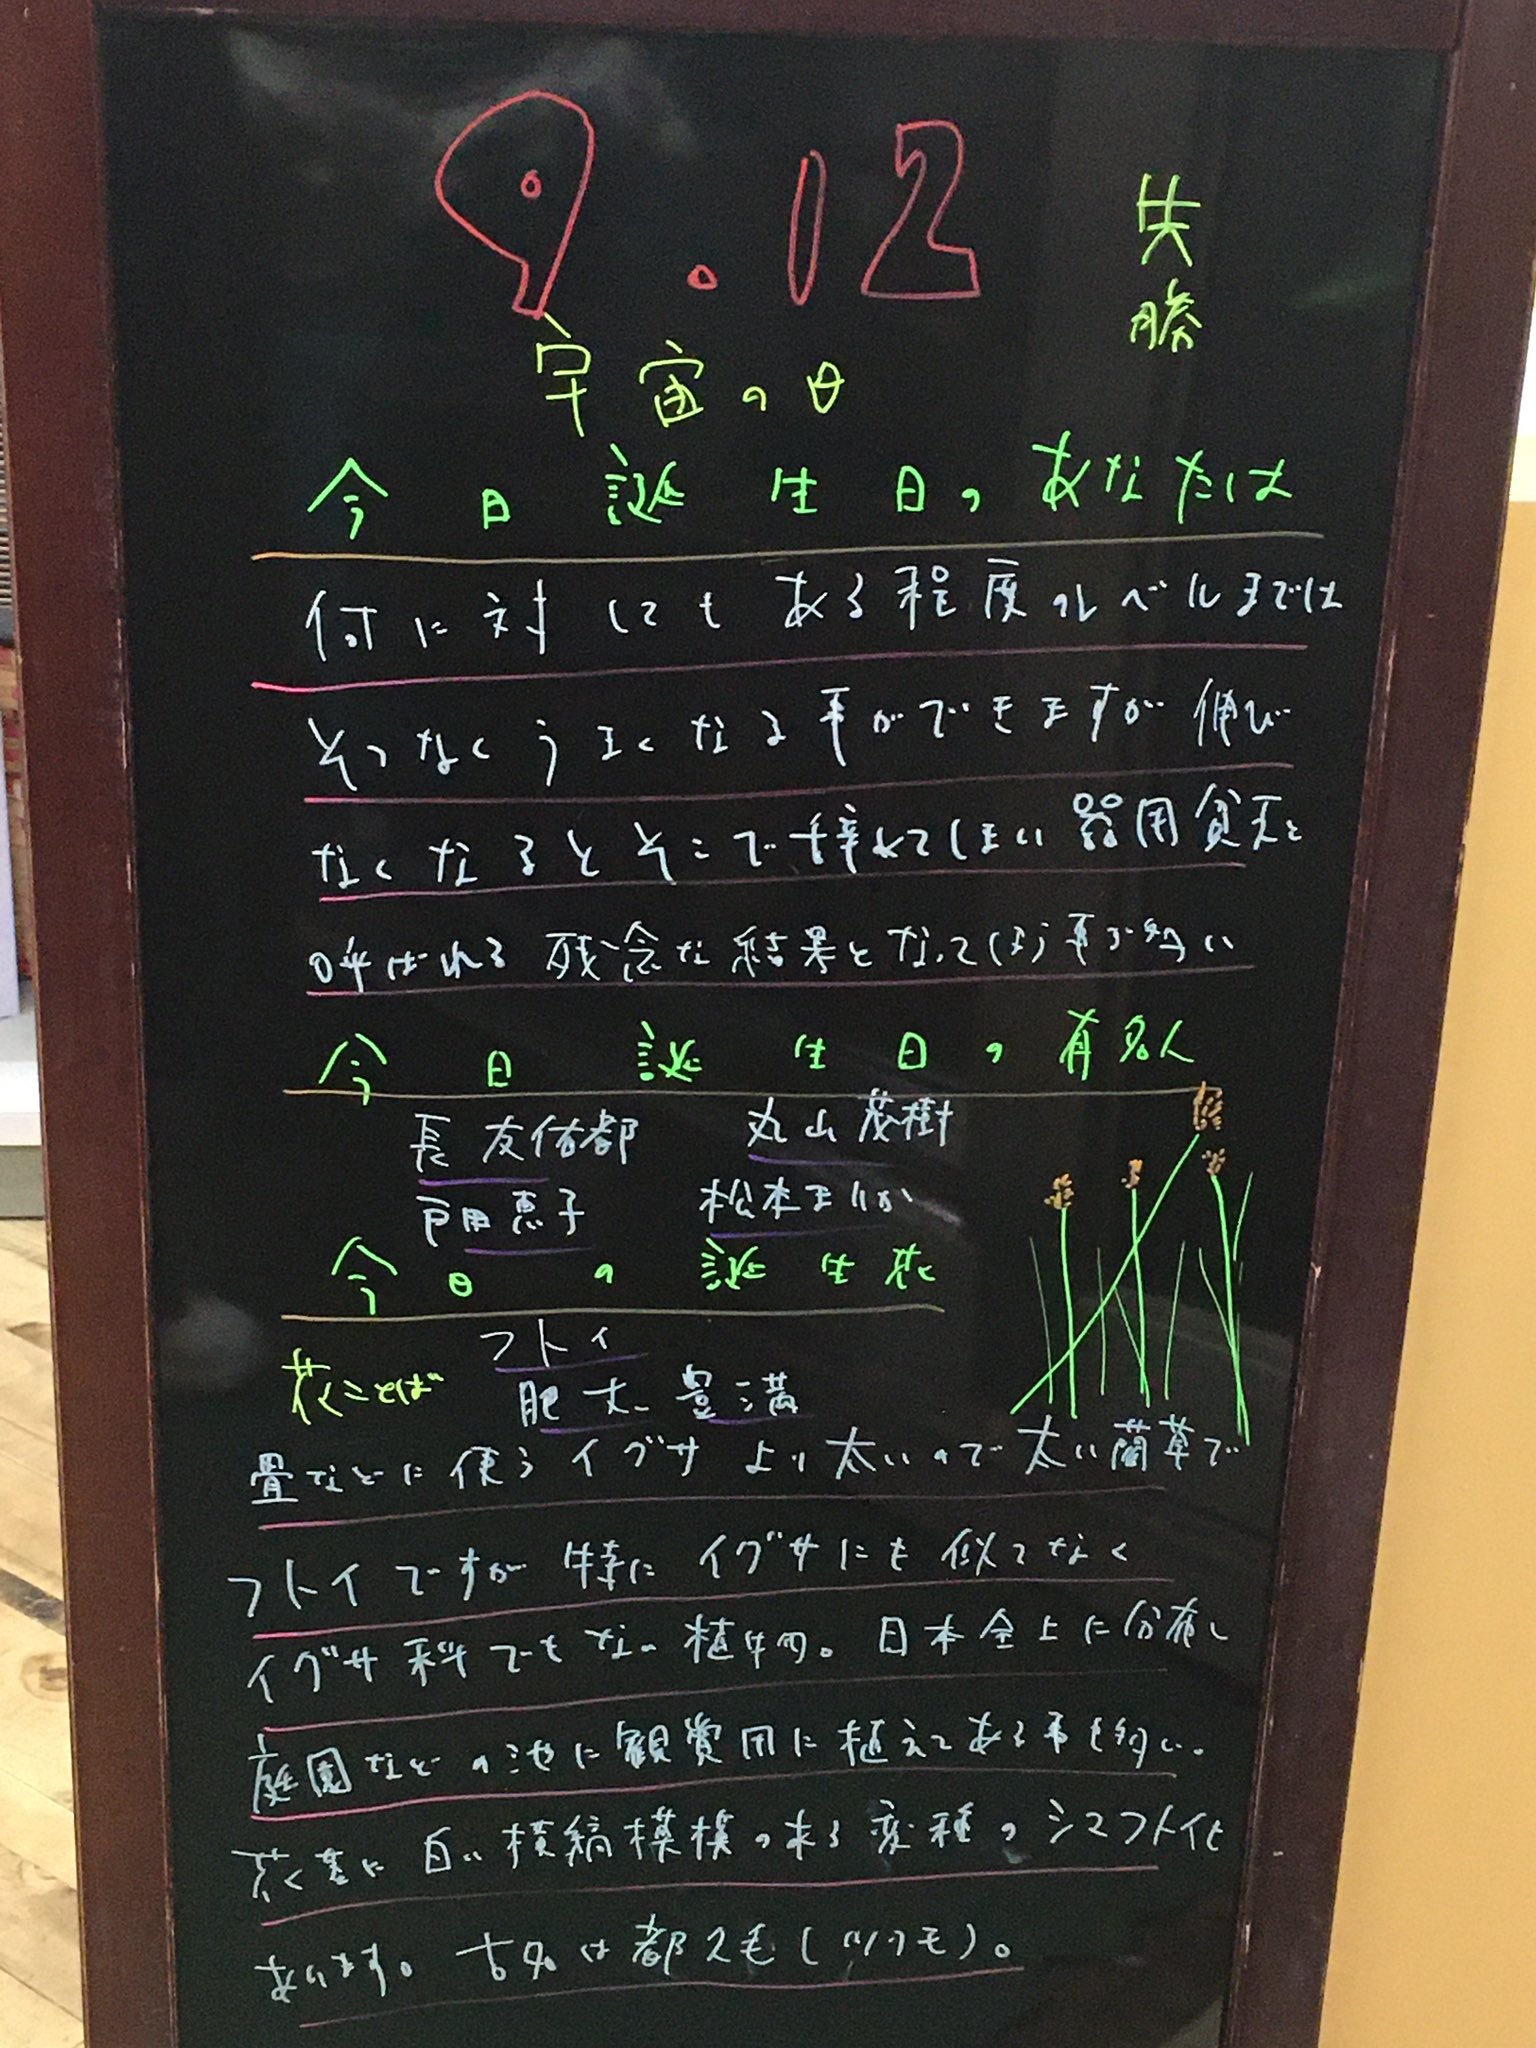 9.12
先勝
宇宙の日
今日誕生日のあなたは
何に対してもある程度のレベルまでは
そつなくうまくなる事ができますが伸び
なくなるとそこで辞めてしまい器用貧乏と
呼ばれる残念な結果となってしまう事が多い
今日誕生日の有名人
長友佑都 丸山茂樹
戸田恵子 松本まりか
今日の誕生花
フトイ
花ことば 肥大 豊満
畳などに使うイグサより太いので太い藺草で
フトイですが特にイグサにも似てなく
イグサ科でもない植物。日本全土に分布し
庭園などの池に観賞用に植えてある事も多い。
花茎に白い横縞模様の来る変種のシマフトイも
あります。古名は都久毛(ツクモ)。